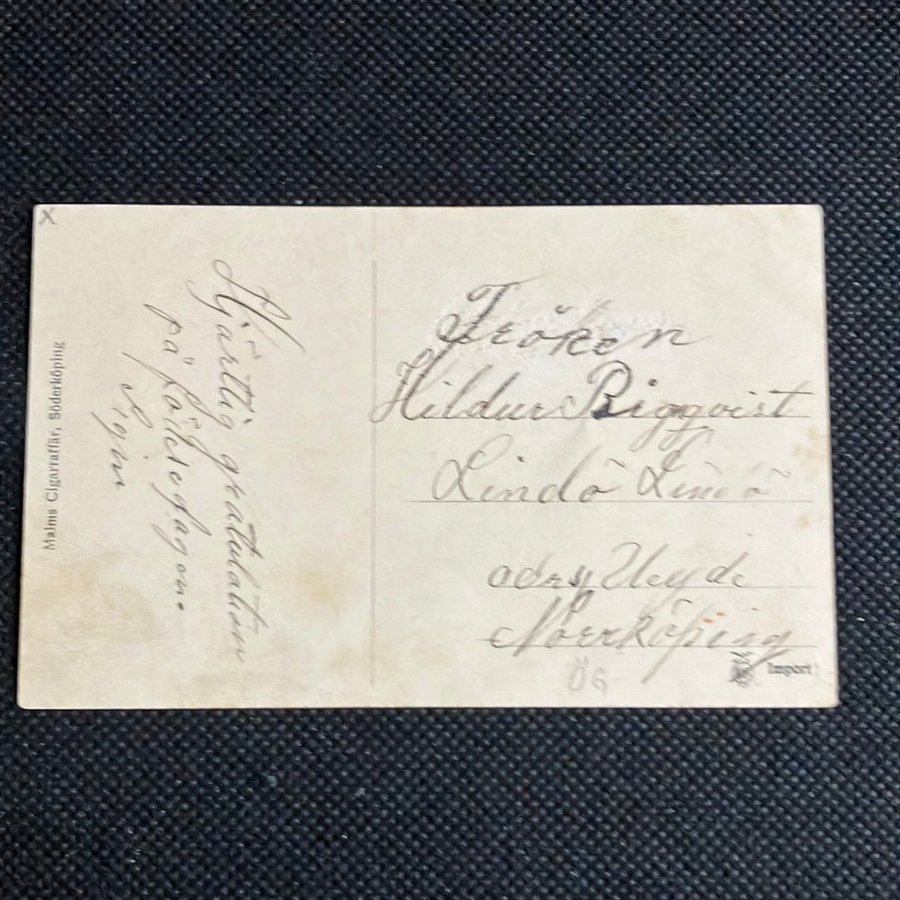 X
Malms Cigarraffär, Söderköping
Hjärtlig gratulation
på födelsedagen.
Fröken
Hildur Bigqvist
Lindö Lindö
adrs
Norrköping
ÖG
Import